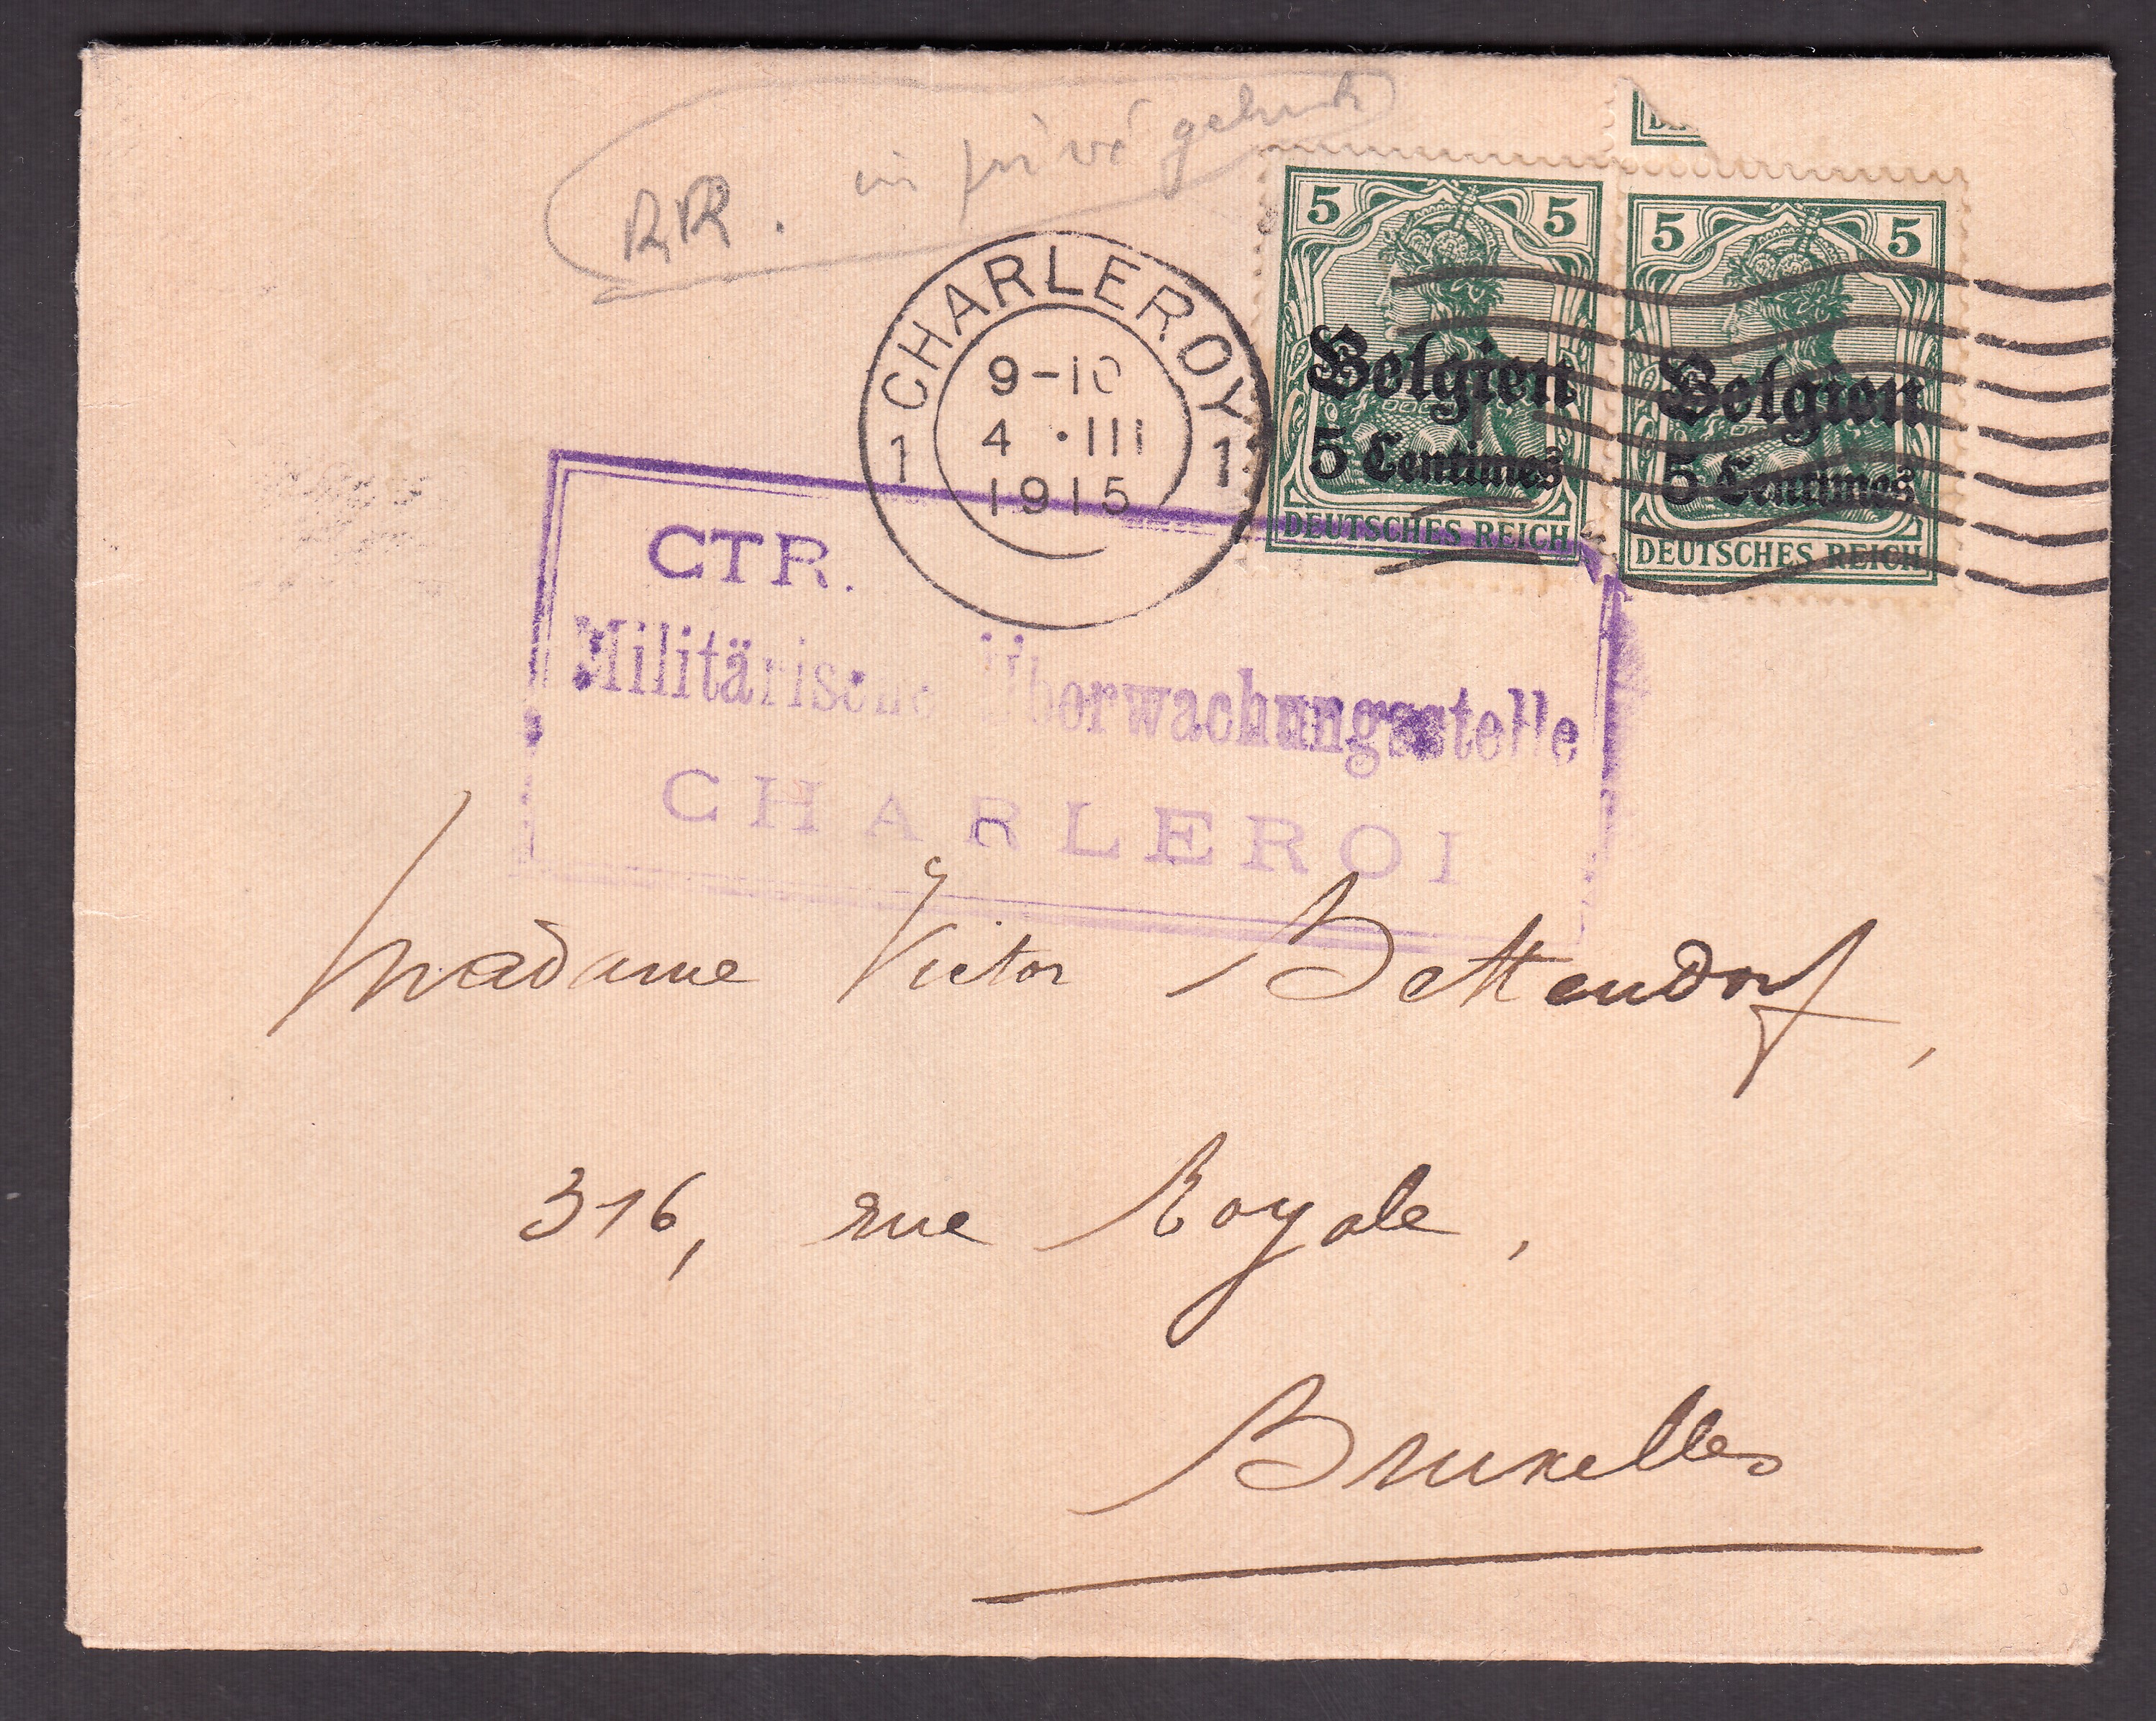 RR. in privé gebruik
CHARLEROY
1 1
9-10
4 · III
1915
5 5
Belgien
5 Centimes
DEUTSCHES REICH
5 5
Belgien
5 Centimes
DEUTSCHES REICH
CTR.
Militärische Überwachungsstelle
CHARLEROI
Madame Victor Bettendorf,
316, rue Royale,
Bruxelles